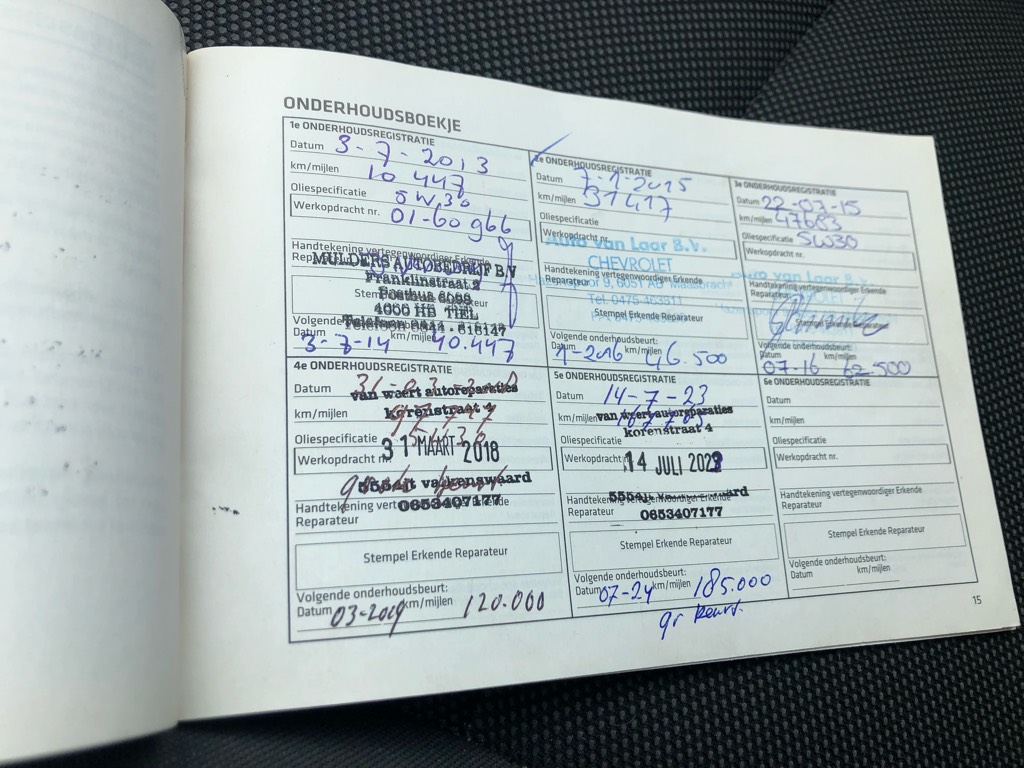 ONDERHOUDSBOEKJE
1e ONDERHOUDSREGISTRATIE
Datum 3-7-2013
km/mijlen 10447
Oliespecificatie 5W30
Werkopdracht nr. 01-60966
Handtekening vertegenwoordiger Erkende
Reparateur
MULDERS AUTOBEDRIJF B.V.
Franklinstraat 2
Stempel Erkende Reparateur
Postbus 6069
4000 HB TIEL
Telefoon 0344 - 616147
Volgende onderhoudsbeurt:
Datum 3-7-14 km/mijlen 40.447
2e ONDERHOUDSREGISTRATIE
Datum 7-1-2015
km/mijlen 31417
Oliespecificatie
Werkopdracht nr.
Auto van Laar B.V.
CHEVROLET
Handtekening vertegenwoordiger Erkende
Reparateur
9, 6051 AB Maasbracht
Tel. 0475-463311
Stempel Erkende Reparateur
Volgende onderhoudsbeurt:
Datum 1-2016 km/mijlen 46.500
3e ONDERHOUDSREGISTRATIE
Datum 22-07-15
km/mijlen 47683
Oliespecificatie 5W30
Werkopdracht nr.
van Laar B.V.
Handtekening vertegenwoordiger Erkende
Reparateur
Stempel Erkende Reparateur
Volgende onderhoudsbeurt:
Datum km/mijlen
07-16 62.500
4e ONDERHOUDSREGISTRATIE
Datum
van weert autoreparaties
km/mijlen
korenstraat 4
Oliespecificatie
Werkopdracht nr. 31 MAART 2018
5554jt valkenswaard
Handtekening vertegenwoordiger Erkende
0653407177
Reparateur
Stempel Erkende Reparateur
Volgende onderhoudsbeurt:
Datum 03-2019 km/mijlen 120.000
5e ONDERHOUDSREGISTRATIE
Datum 14-7-23
km/mijlen van weert autoreparaties
korenstraat 4
Oliespecificatie
Werkopdracht 14 JULI 2023
5554jt valkenswaard
Handtekening vertegenwoordiger Erkende
Reparateur 0653407177
Stempel Erkende Reparateur
Volgende onderhoudsbeurt:
Datum 07-24 km/mijlen 185.000
gr beurt.
6e ONDERHOUDSREGISTRATIE
Datum
km/mijlen
Oliespecificatie
Werkopdracht nr.
Handtekening vertegenwoordiger Erkende
Reparateur
Stempel Erkende Reparateur
Volgende onderhoudsbeurt:
Datum km/mijlen
15